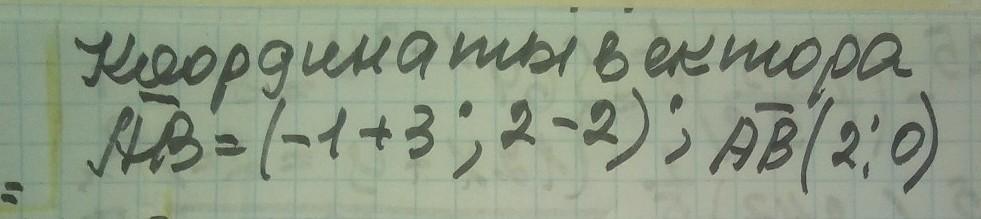 Координаты вектора
= A̅B̅ = (-1 + 3 ; 2 - 2) ; A̅B̅ (2; 0)